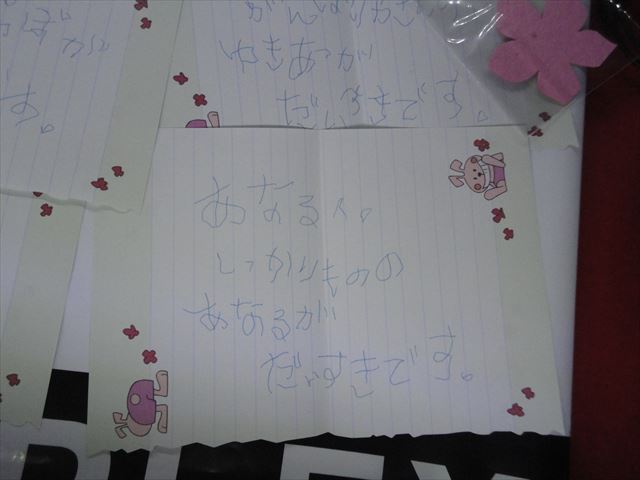 ぽが
す。
がんばりやさ
ゆきあつが
だいすきです。
あなるへ。
しっかりものの
あなるが
だいすきです。